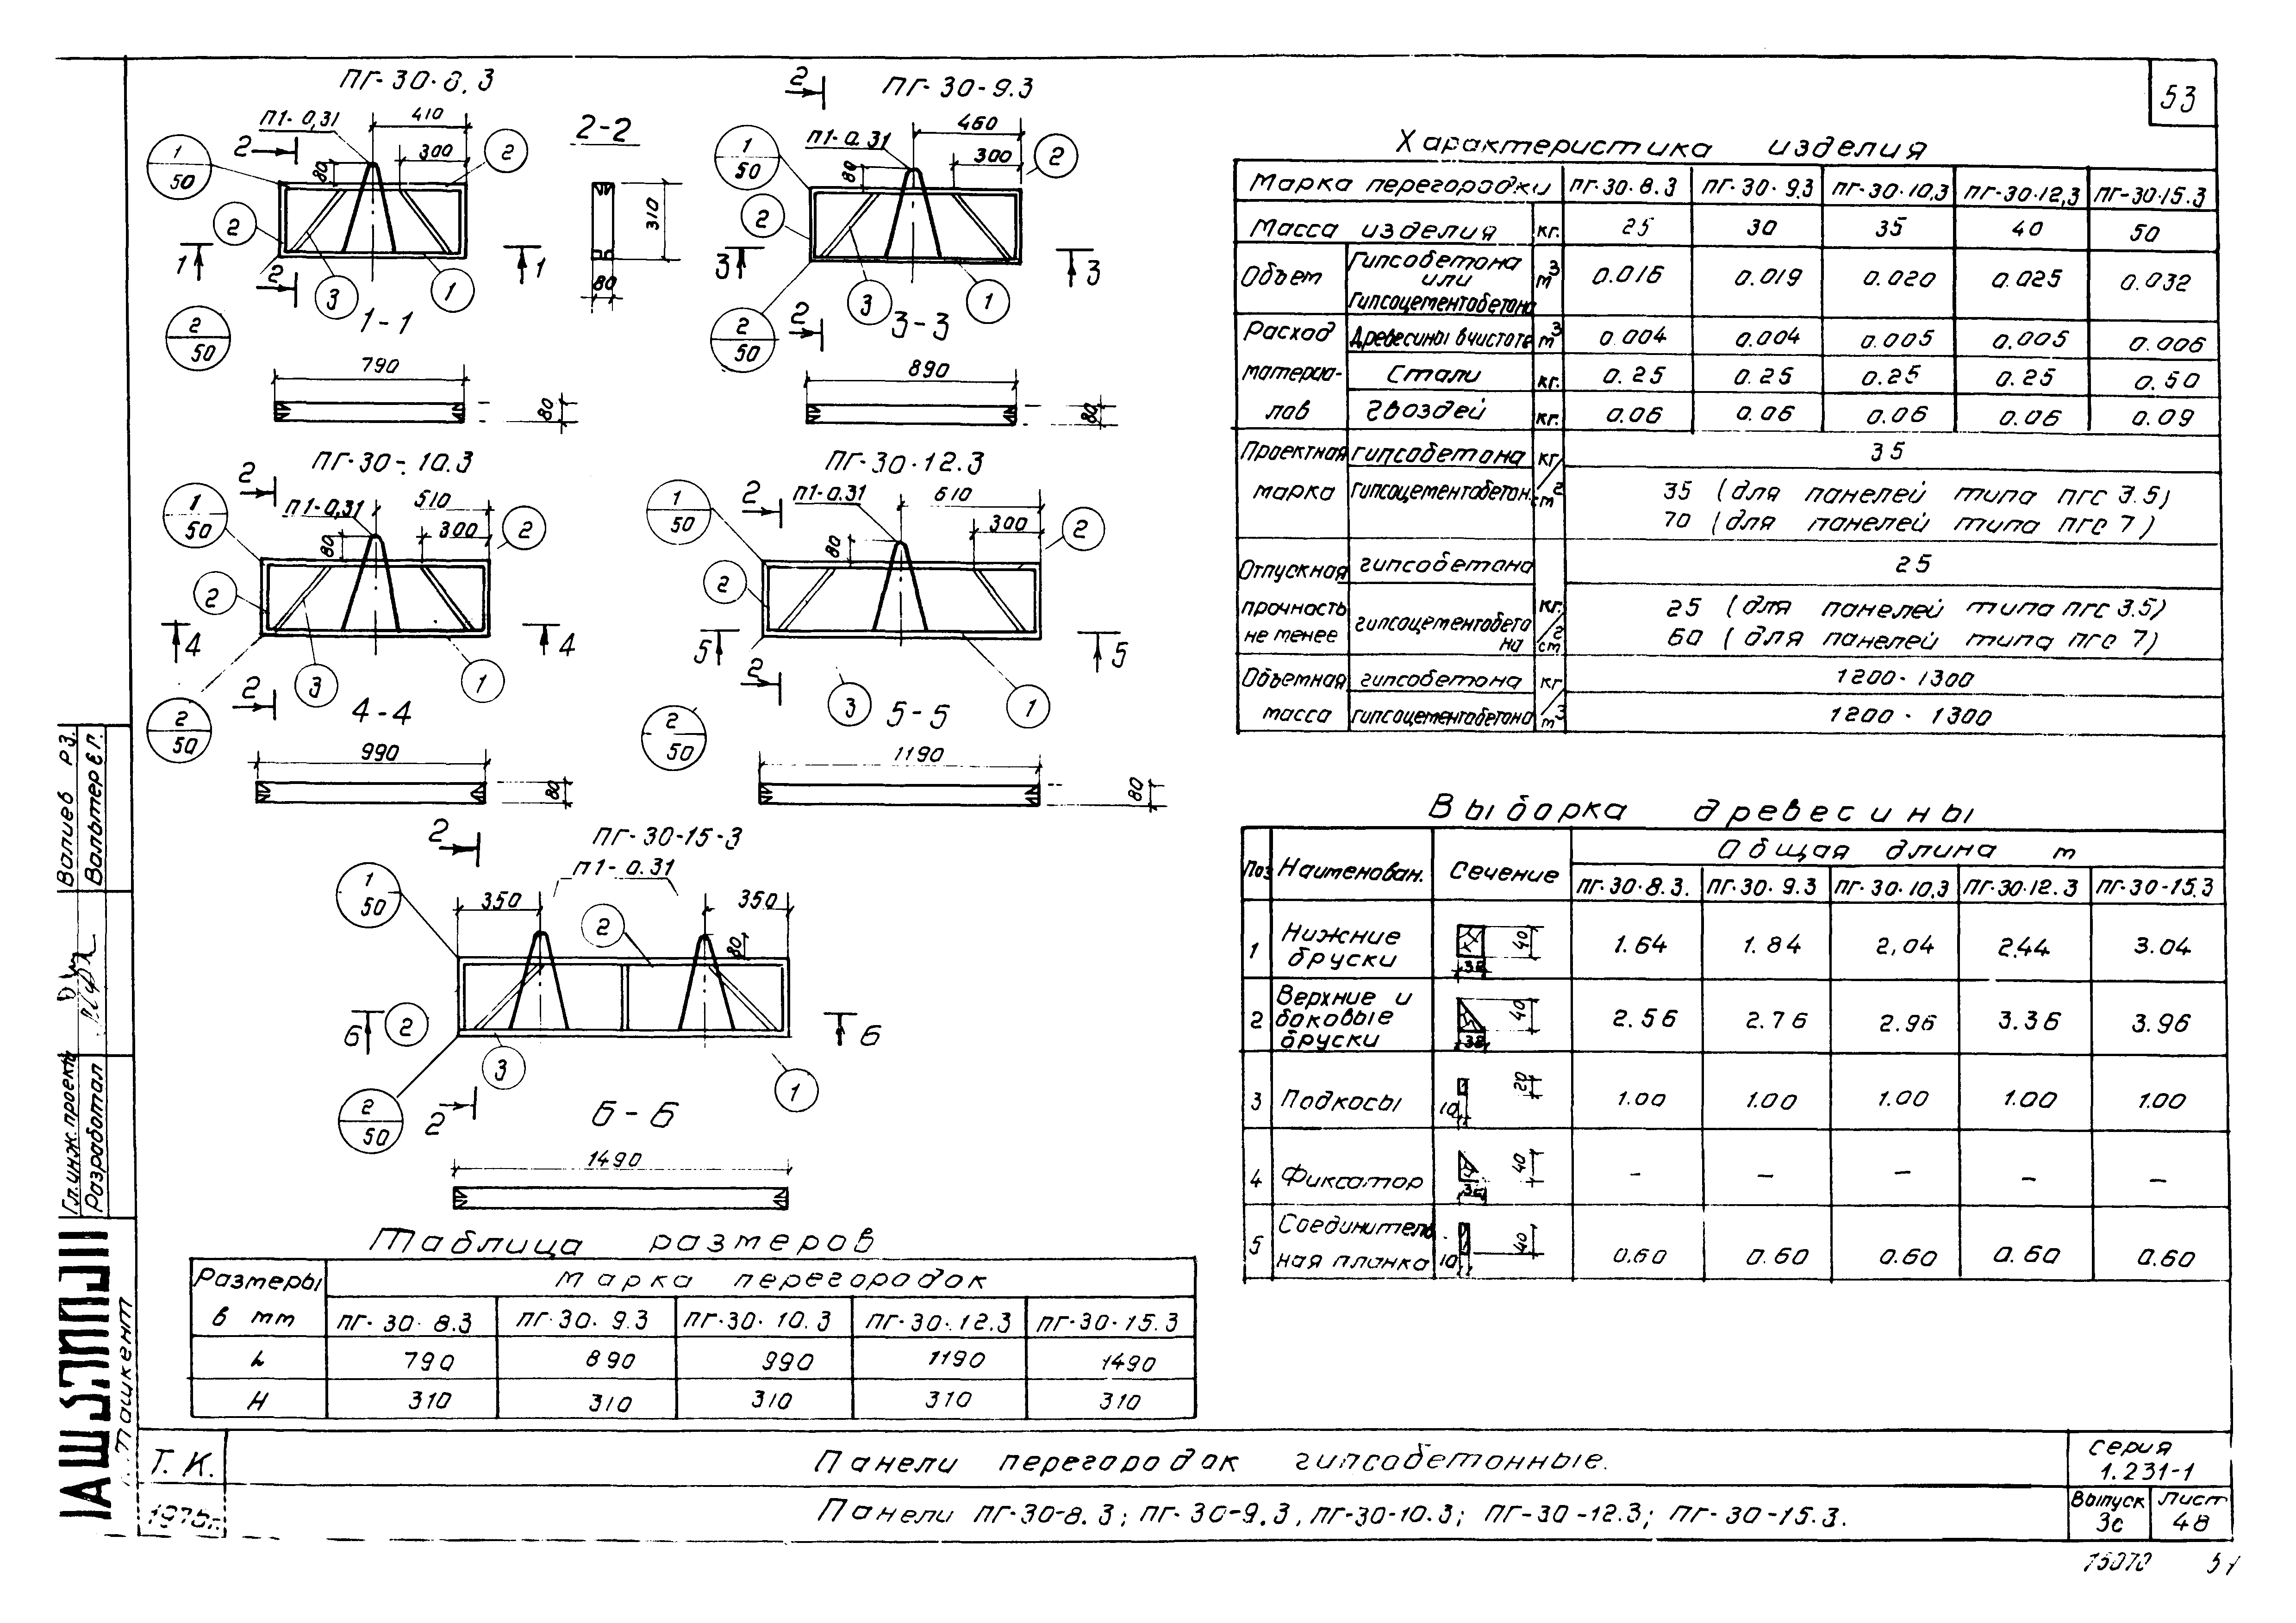 53
ПГ-30-8.3
П1-0,31
410
300
80
2
1
50
2
2
1
1
2
3
1
2
50
1-1
790
80
2-2
310
80
ПГ-30-9.3
П1-0.31
460
300
80
2
1
50
2
2
3
3
2
3
1
2
50
3-3
890
80
ПГ-30-10.3
П1-0,31
510
300
80
2
1
50
2
2
4
4
2
3
1
2
50
4-4
990
80
ПГ-30-12.3
П1-0.31
610
300
80
2
1
50
2
2
5
5
2
3
1
2
50
5-5
1190
80
ПГ-30-15-3
П1-0.31
350
350
80
2
1
50
2
6
2
6
3
1
2
2
50
6-6
1490
Таблица размеров
Размеры в мм | Марка перегородок
ПГ-30-8.3 | ПГ-30-9.3 | ПГ-30-10.3 | ПГ-30-12.3 | ПГ-30-15.3
L | 790 | 890 | 990 | 1190 | 1490
H | 310 | 310 | 310 | 310 | 310
Характеристика изделия
Марка перегородки | ПГ-30-8.3 | ПГ-30-9.3 | ПГ-30-10,3 | ПГ-30-12,3 | ПГ-30-15.3
Масса изделия | кг. | 25 | 30 | 35 | 40 | 50
Объем | Гипсобетона или Гипсоцементобетона | м3 | 0.016 | 0.019 | 0.020 | 0.025 | 0.032
Расход материалов | Древесины вчистоте | м3 | 0.004 | 0.004 | 0.005 | 0.005 | 0.006
Стали | кг. | 0.25 | 0.25 | 0.25 | 0.25 | 0.50
Гвоздей | кг. | 0.06 | 0.06 | 0.06 | 0.06 | 0.09
Проектная марка | гипсобетона | кг/см2 | 35
гипсоцементобетон. | 35 (для панелей типа ПГС 3.5)
70 (для панелей типа ПГС 7)
Отпускная прочность не менее | гипсобетона | кг./см2 | 25
гипсоцементобетона | 25 (для панелей типа ПГС 3.5)
60 (для панелей типа ПГС 7)
Объемная масса | гипсобетона | кг/м3 | 1200-1300
гипсоцементобетона | 1200-1300
Выборка древесины
Поз | Наименован. | Сечение | Общая длина м
ПГ-30-8.3. | ПГ-30-9.3 | ПГ-30-10,3 | ПГ-30-12.3 | ПГ-30-15.3
1 | Нижние бруски | 40 | 1.64 | 1.84 | 2,04 | 2.44 | 3.04
2 | Верхние и боковые бруски | 40 | 2.56 | 2.76 | 2.96 | 3.36 | 3.96
3 | Подкосы | 10 20 | 1.00 | 1.00 | 1.00 | 1.00 | 1.00
4 | Фиксатор | 40 | - | - | - | - | -
5 | Соединительная планка | 10 40 | 0.60 | 0.60 | 0.60 | 0.60 | 0.60
Гл.инж.проекта Валиев Р.З.
Разработал Вальтер Е.Г.
г. Ташкент
Т.К.
Панели перегородок гипсобетонные.
Панели ПГ-30-8.3; ПГ-30-9.3, ПГ-30-10.3; ПГ-30-12.3; ПГ-30-15.3.
Серия
1.231-1
Выпуск
3с
Лист
48
15070